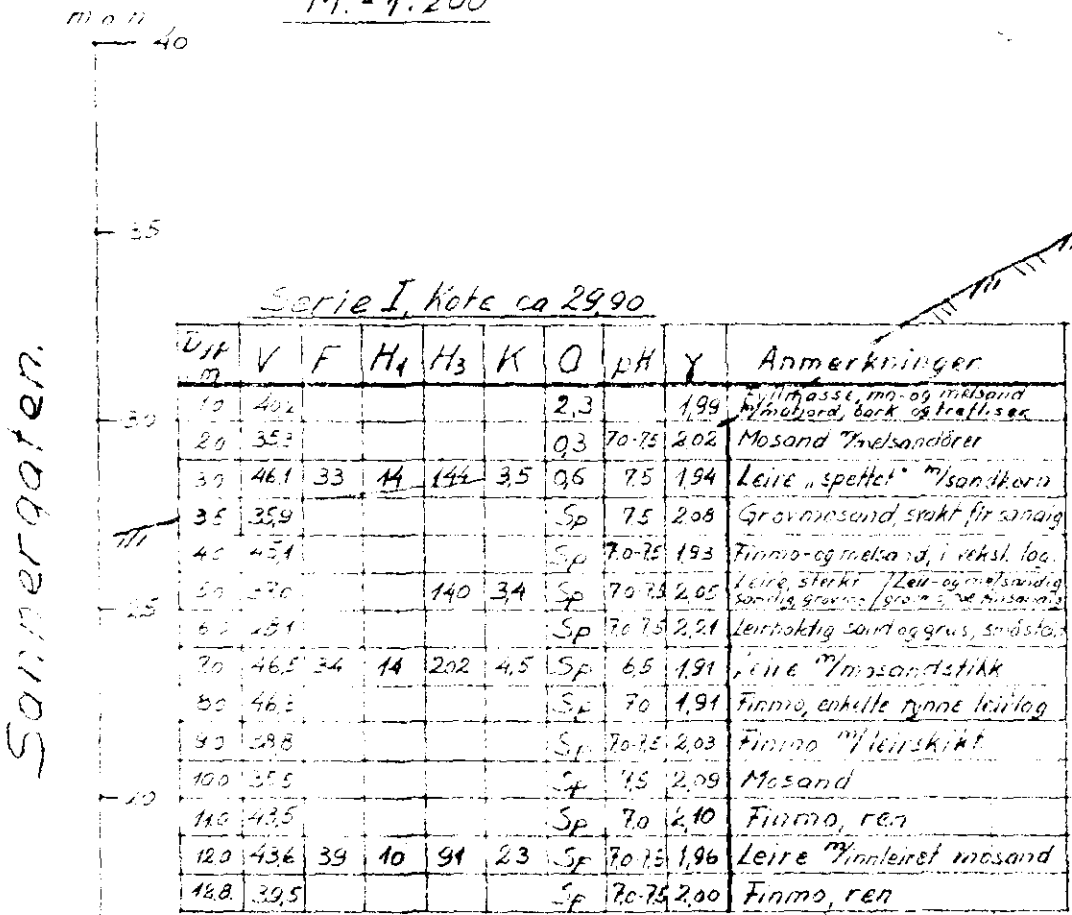 M. - 1:200
m.o.h.
40
35
Sannergaten.
Serie I, Kote ca 29,90
m V F H1 H3 K O pH γ Anmerkninger
1,0 2,3 1,99 Fyllmasse, mo- og melsand
m/matjord, bark og trefliser
30
2,0 35,3 0,3 7,0-7,5 2,02 Mosand
3,0 46,1 33 14 144 3,5 0,6 7,5 1,94 Leire „spettet" m/sandkorn
3,5 35,9 Sp 7,5 2,08 Grovmosand, svakt finsandig
4,0 45,1 Sp 7,0-7,5 1,93 Finmo- og melsand, i veksl. lag.
5,0 37,0 140 3,4 Sp 7,0-7,5 2,05 Leire, sterkt
25
6,0 28,1 Sp 7,0-7,5 2,21 Leirholdig sand og grus, småstein
7,0 46,5 34 14 202 4,5 Sp 6,5 1,91 Leire m/mosandstikk
8,0 Sp 7,0 1,91 Finmo, enkelte tynne leirlag
9,0 38,8 Sp 7,0-7,5 2,03 Finmo m/leirskikt
20
10,0 35,5 Sp 7,5 2,09 Mosand
11,0 43,5 Sp 7,0 2,10 Finmo, ren
12,0 43,6 39 10 91 2,3 Sp 7,0-7,5 1,96 Leire m/innleiret mosand
12,8 39,5 Sp 7,0-7,5 2,00 Finmo, ren